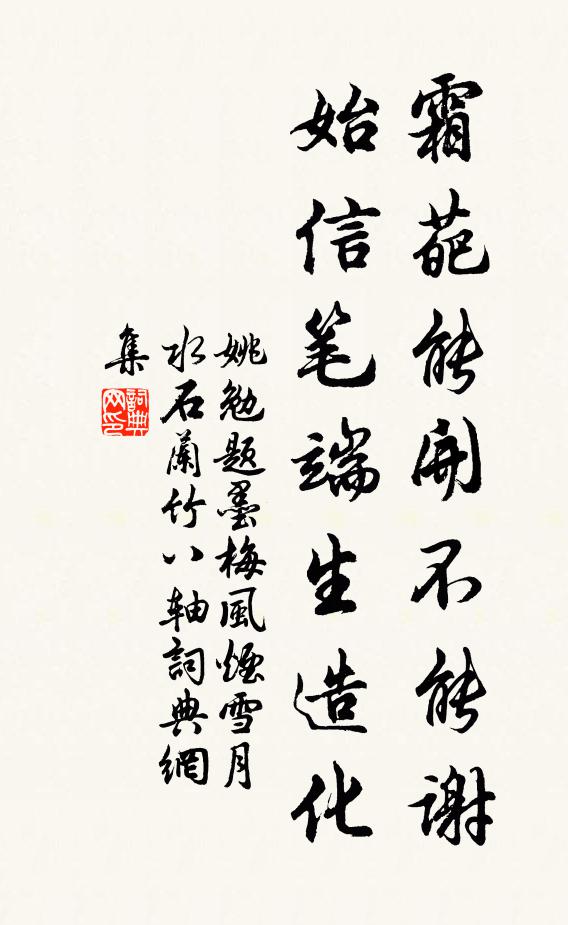 霜葩能開不能謝
始信笔端生造化
姚勉题墨梅風煙雪月
水石蘭竹八軸詞典網
集
詞典网印